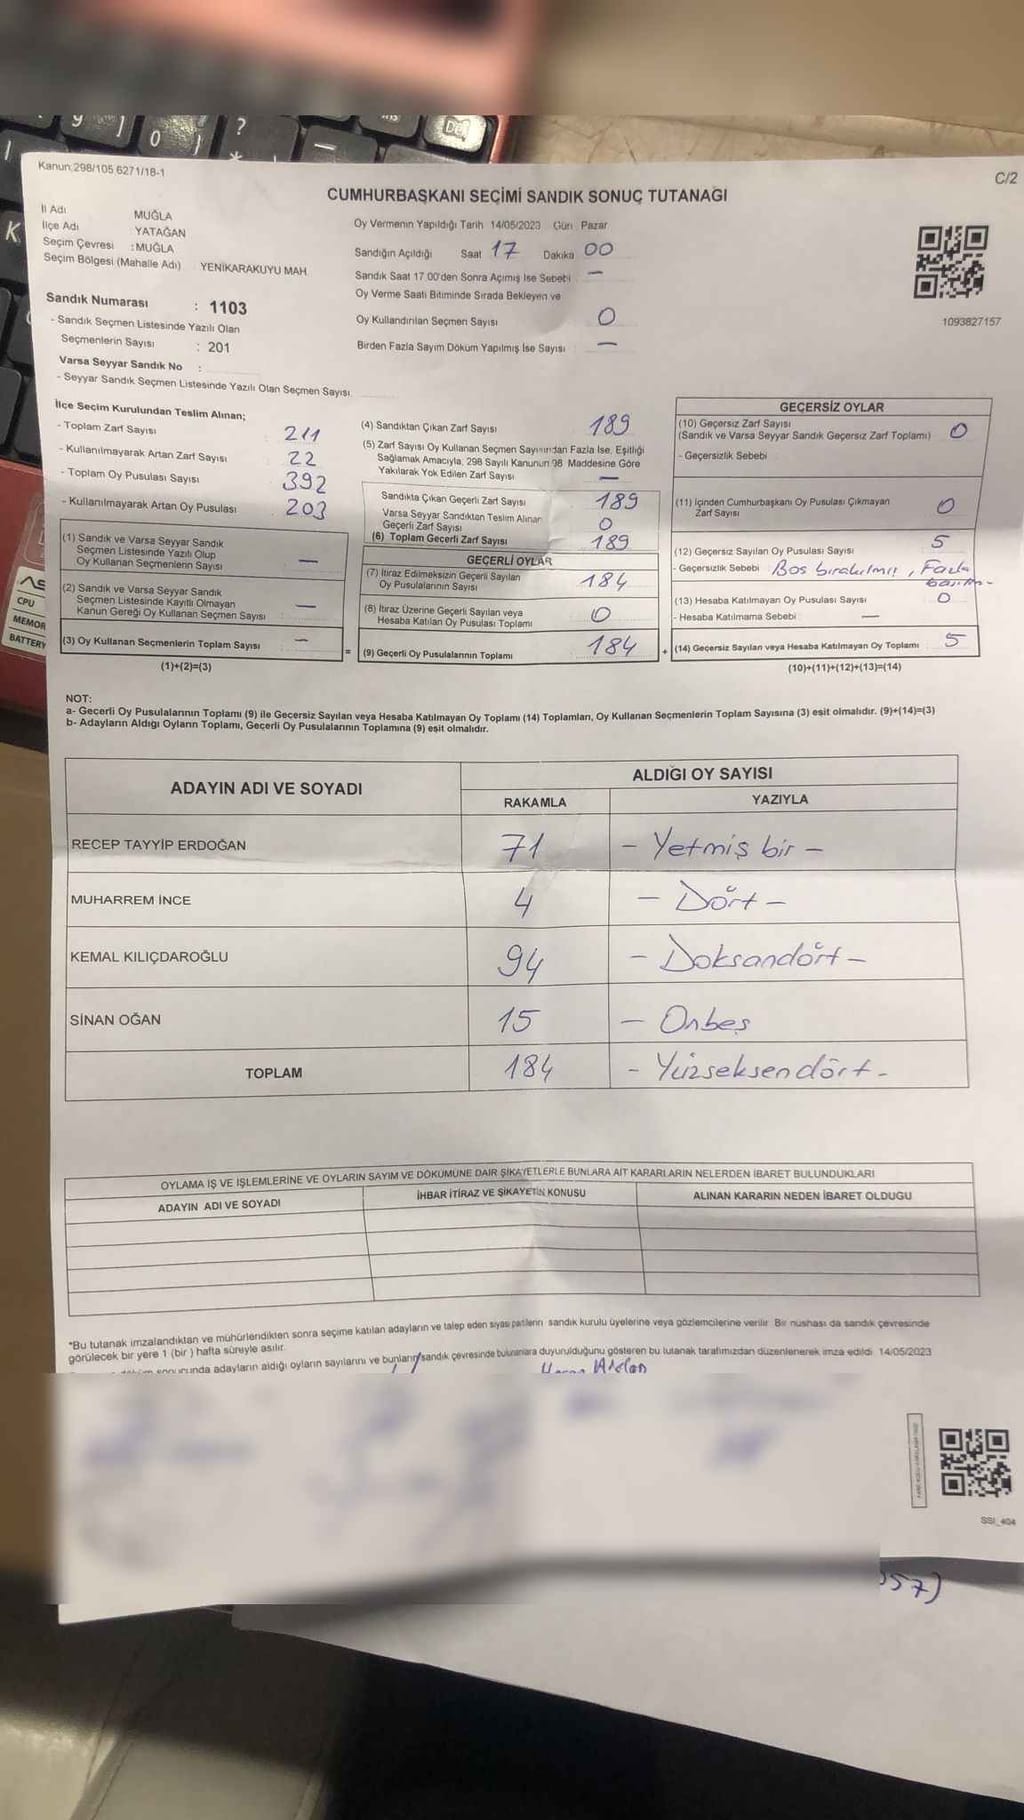 Kanun:298/105 6271/18-1
C/2
CUMHURBAŞKANI SEÇİMİ SANDIK SONUÇ TUTANAĞI
İl Adı MUĞLA
İlçe Adı YATAĞAN
Seçim Çevresi :MUĞLA
Seçim Bölgesi (Mahalle Adı) YENİKARAKUYU MAH.
Oy Vermenin Yapıldığı Tarih 14/05/2023 Gün Pazar
Sandığın Açıldığı Saat 17 Dakika 00
Sandık Saat 17.00'den Sonra Açımış İse Sebebi —
Oy Verme Saati Bitiminde Sırada Bekleyen ve
Oy Kullandırılan Seçmen Sayısı 0
Birden Fazla Sayım Döküm Yapılmış İse Sayısı —
1093827157
Sandık Numarası : 1103
- Sandık Seçmen Listesinde Yazılı Olan
Seçmenlerin Sayısı : 201
Varsa Seyyar Sandık No :
- Seyyar Sandık Seçmen Listesinde Yazılı Olan Seçmen Sayısı
İlçe Seçim Kurulundan Teslim Alınan;
- Toplam Zarf Sayısı 211
- Kullanılmayarak Artan Zarf Sayısı 22
- Toplam Oy Pusulası Sayısı 392
- Kullanılmayarak Artan Oy Pusulası 203
(1) Sandık ve Varsa Seyyar Sandık
Seçmen Listesinde Yazılı Olup
Oy Kullanan Seçmenlerin Sayısı —
(2) Sandık ve Varsa Seyyar Sandık
Seçmen Listesinde Kayıtlı Olmayan
Kanun Gereği Oy Kullanan Seçmen Sayısı —
(3) Oy Kullanan Seçmenlerin Toplam Sayısı —
(1)+(2)=(3)
(4) Sandıktan Çıkan Zarf Sayısı 189
(5) Zarf Sayısı Oy Kullanan Seçmen Sayısından Fazla İse, Eşitliği
Sağlamak Amacıyla, 298 Sayılı Kanunun 98 Maddesine Göre
Yakılarak Yok Edilen Zarf Sayısı —
Sandıkta Çıkan Geçerli Zarf Sayısı 189
Varsa Seyyar Sandıktan Teslim Alınan
Geçerli Zarf Sayısı 0
(6) Toplam Geçerli Zarf Sayısı 189
GEÇERLİ OYLAR
(7) İtiraz Edilmeksizin Geçerli Sayılan
Oy Pusulalarının Sayısı 184
(8) İtiraz Üzerine Geçerli Sayılan veya
Hesaba Katılan Oy Pusulası Toplamı 0
= (9) Geçerli Oy Pusulalarının Toplamı 184
GEÇERSİZ OYLAR
(10) Geçersiz Zarf Sayısı
(Sandık ve Varsa Seyyar Sandık Geçersiz Zarf Toplamı) 0
- Geçersizlik Sebebi
(11) İçinden Cumhurbaşkanı Oy Pusulası Çıkmayan
Zarf Sayısı 0
(12) Geçersiz Sayılan Oy Pusulası Sayısı 5
- Geçersizlik Sebebi Boş bırakılmış, Fazla
(13) Hesaba Katılmayan Oy Pusulası Sayısı 0
- Hesaba Katılmama Sebebi —
+ (14) Geçersiz Sayılan veya Hesaba Katılmayan Oy Toplamı 5
(10)+(11)+(12)+(13)=(14)
NOT:
a- Geçerli Oy Pusulalarının Toplamı (9) ile Geçersiz Sayılan veya Hesaba Katılmayan Oy Toplamı (14) Toplamları, Oy Kullanan Seçmenlerin Toplam Sayısına (3) eşit olmalıdır. (9)+(14)=(3)
b- Adayların Aldığı Oyların Toplamı, Geçerli Oy Pusulalarının Toplamına (9) eşit olmalıdır.
ADAYIN ADI VE SOYADI
ALDIĞI OY SAYISI
RAKAMLA YAZIYLA
RECEP TAYYİP ERDOĞAN 71 - Yetmiş bir -
MUHARREM İNCE 4 - Dört -
KEMAL KILIÇDAROĞLU 94 - Doksandört -
SİNAN OĞAN 15 - Onbeş
TOPLAM 184 - Yüzseksendört -
OYLAMA İŞ VE İŞLEMLERİNE VE OYLARIN SAYIM VE DÖKÜMÜNE DAİR ŞİKAYETLERLE BUNLARA AİT KARARLARIN NELERDEN İBARET BULUNDUKLARI
ADAYIN ADI VE SOYADI İHBAR İTİRAZ VE ŞİKAYETİN KONUSU ALINAN KARARIN NEDEN İBARET OLDUĞU
*Bu tutanak imzalandıktan ve mühürlendikten sonra seçime katılan adayların ve talep eden siyasi partilerin sandık kurulu üyelerine veya gözlemcilerine verilir. Bir nüshası da sandık çevresinde
görülecek bir yere 1 (bir ) hafta süreyle asılır.
adayların aldığı oyların sayılarını ve bunların sandık çevresinde bulunanlara duyurulduğunu gösteren bu tutanak tarafımızdan düzenlenerek imza edildi. 14/05/2023
SSI_404
57)
CPU
BATTERY